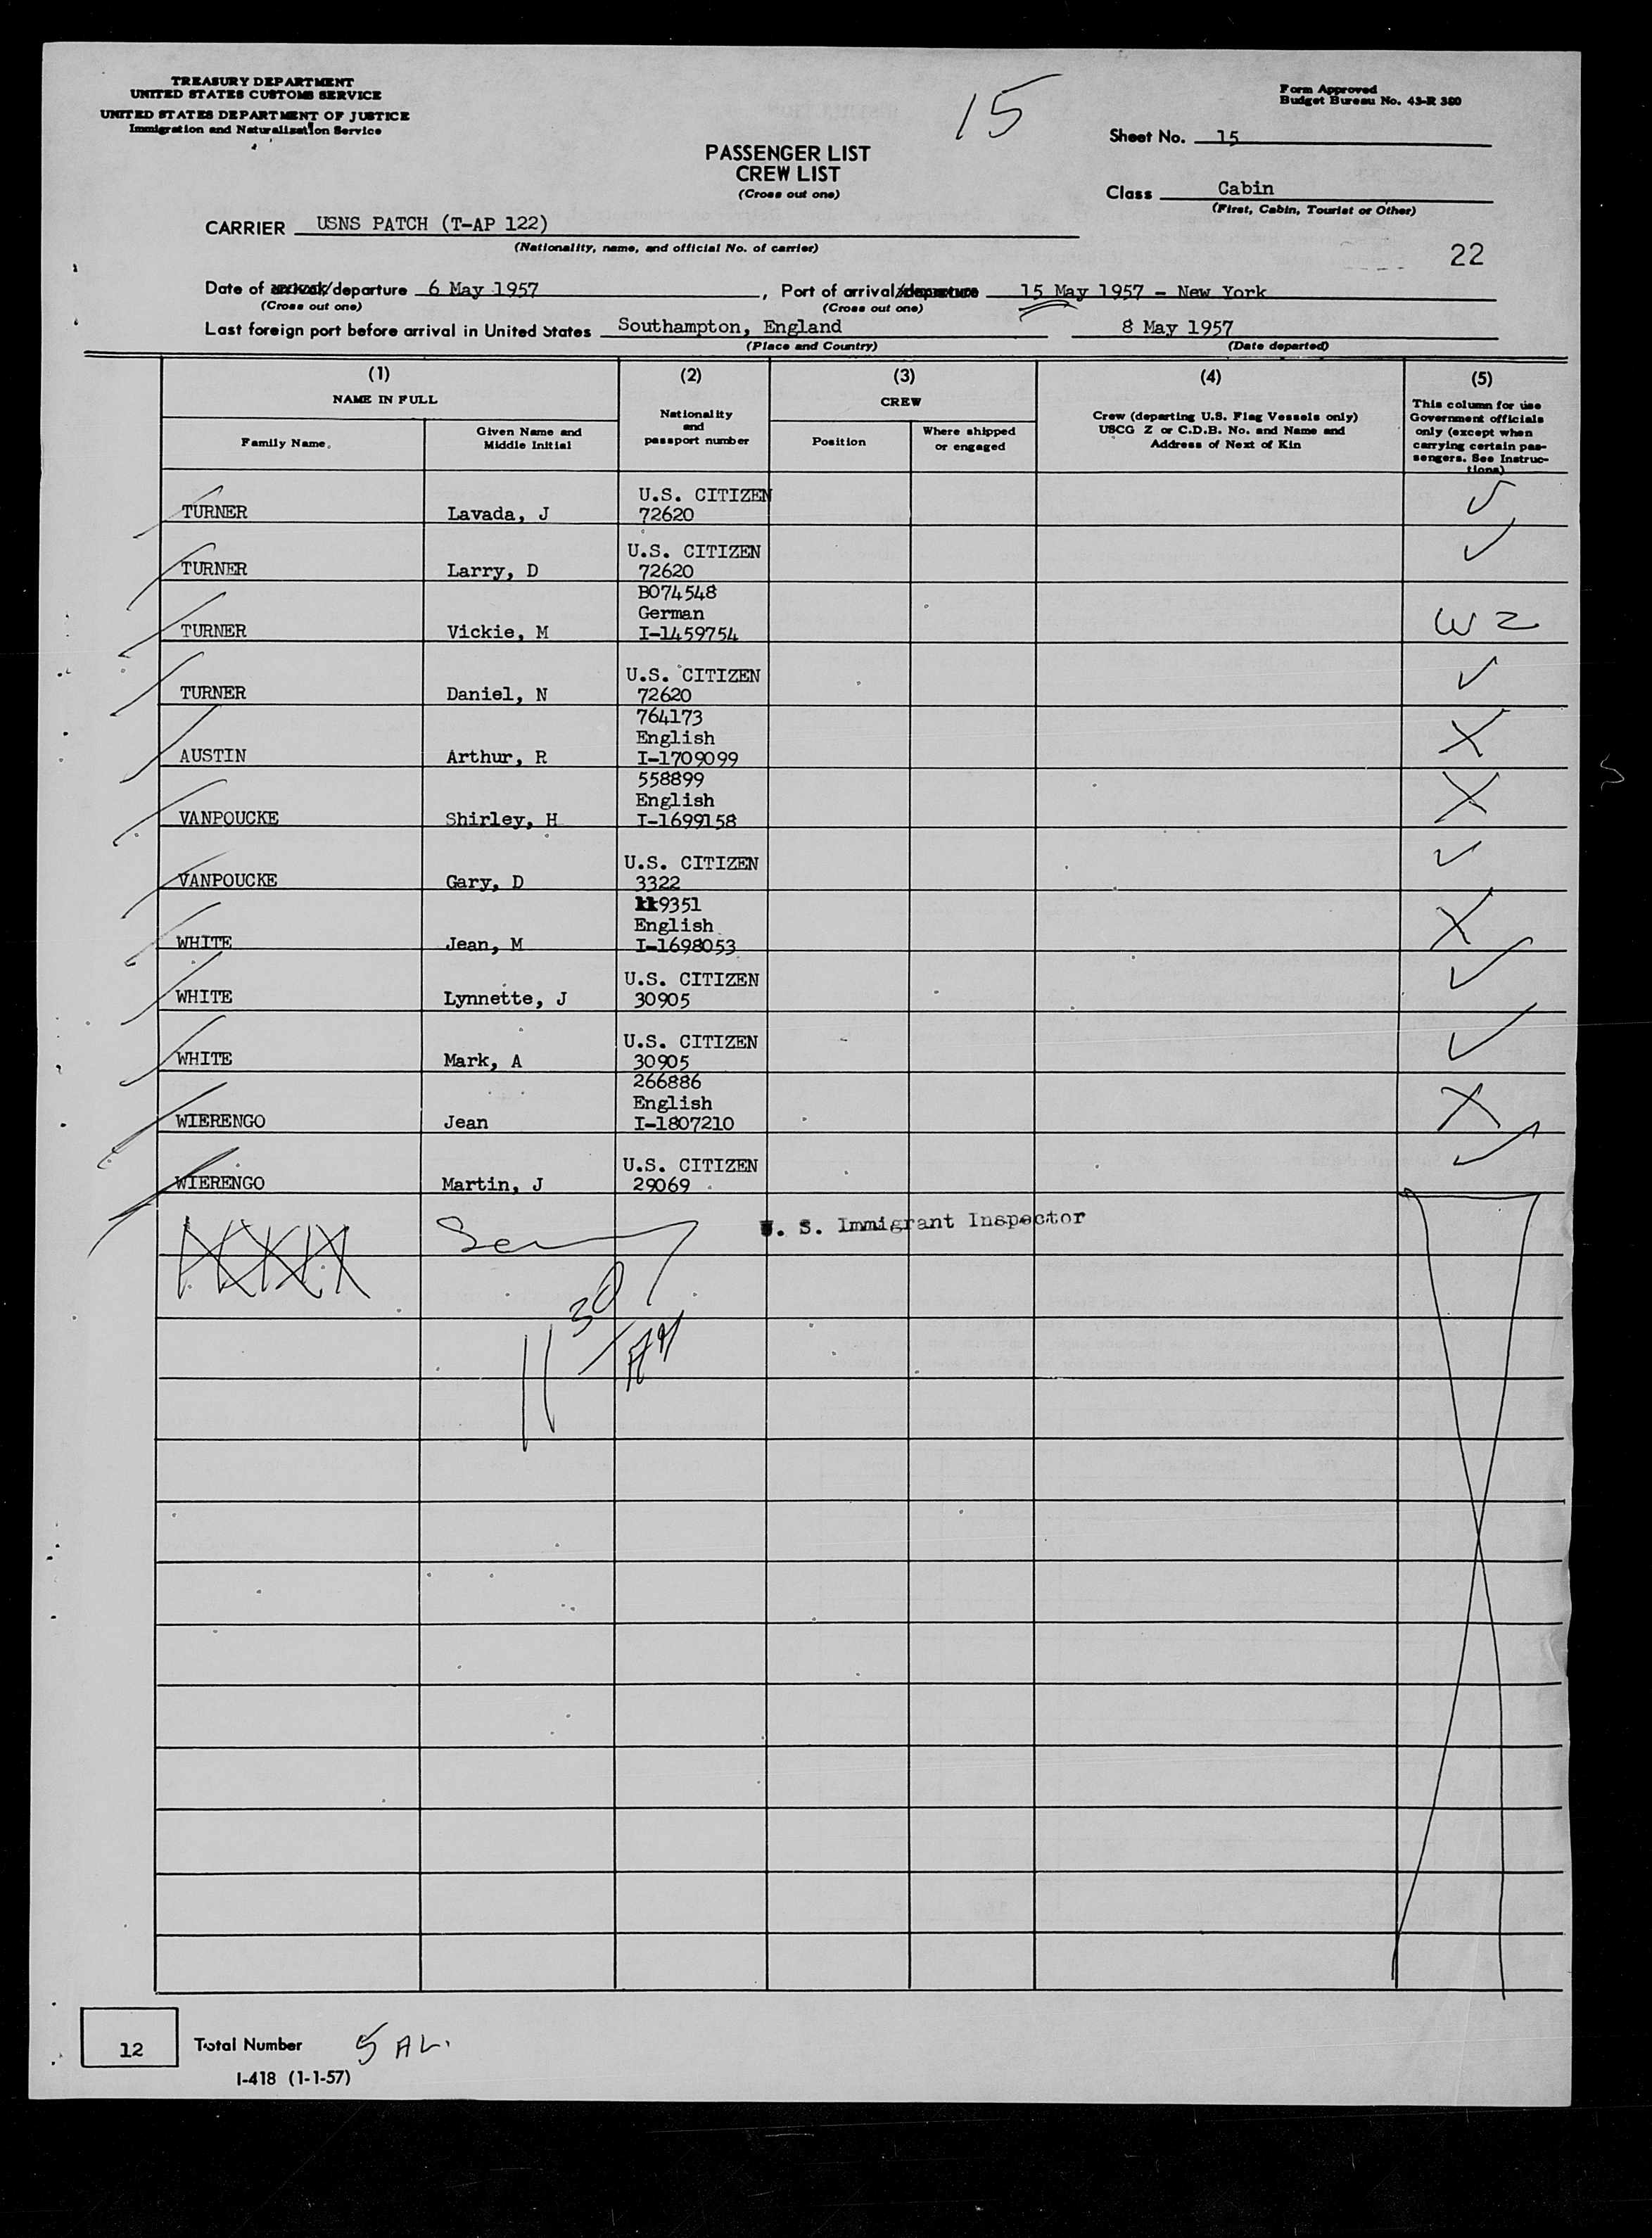 TREASURY DEPARTMENT
UNITED STATES CUSTOMS SERVICE
UNITED STATES DEPARTMENT OF JUSTICE
Immigration and Naturalization Service
15
Form Approved
Budget Bureau No. 43-R 380
Sheet No. 15
PASSENGER LIST
CREW LIST
(Cross out one)
Class Cabin
(First, Cabin, Tourist or Other)
CARRIER USNS PATCH (T-AP 122)
(Nationality, name, and official No. of carrier)
22
Date of /departure 6 May 1957, Port of arrival/departure 15 May 1957 - New York
(Cross out one) (Cross out one)
Last foreign port before arrival in United States Southampton, England 8 May 1957
(Place and Country) (Date departed)
(1) (2) (3) (4) (5)
NAME IN FULL
Family Name
Given Name and
Middle Initial
Nationality
and
passport number
CREW
Position
Where shipped
or engaged
Crew (departing U.S. Flag Vessels only)
USCG Z or C.D.B. No. and Name and
Address of Next of Kin
This column for use
Government officials
only (except when
carrying certain pas-
sengers. See Instruc-
tions)
U.S. CITIZEN
TURNER Lavada, J 72620
U.S. CITIZEN
TURNER Larry, D 72620
B074548
German
TURNER Vickie, M I-1459754
W 2
U.S. CITIZEN
TURNER Daniel, N 72620
764173
English
AUSTIN Arthur, R I-1709099
X
558899
English
VANPOUCKE Shirley, H I-1699158
X
U.S. CITIZEN
VANPOUCKE Gary, D 3322
9351
English
WHITE Jean, M I-1698053
X
U.S. CITIZEN
WHITE Lynnette, J 30905
U.S. CITIZEN
WHITE Mark, A 30905
266886
English
WIERENGO Jean I-1807210
X
U.S. CITIZEN
WIERENGO Martin, J 29069
U. S. Immigrant Inspector
11 30 AM
12 Total Number 5 AL.
I-418 (1-1-57)